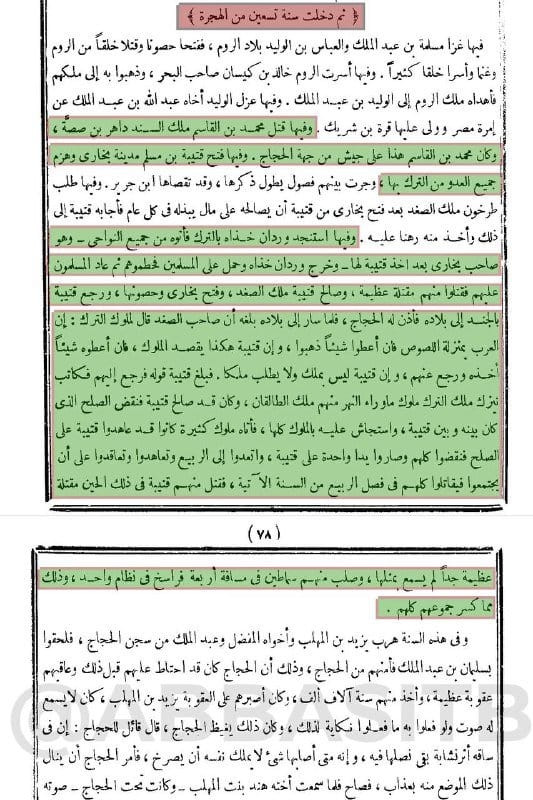 ﴿ ثم دخلت سنة تسعين من الهجرة ﴾
فيها غزا مسلمة بن عبد الملك والعباس بن الوليد بلاد الروم ، ففتحا حصونا وقتلا خلقاً من الروم
وغنما وأسرا خلقا كثيراً . وفيها أسرت الروم خالد بن كيسان صاحب البحر ، وذهبوا به إلى ملكهم
فأهداه ملك الروم إلى الوليد بن عبد الملك . وفيها عزل الوليد أخاه عبد الله بن عبد الملك عن
إمرة مصر وولى عليها قرة بن شريك . وفيها قتل محمد بن القاسم ملك السند داهر بن صصَّة ،
وكان محمد بن القاسم هذا على جيش من جهة الحجاج . وفيها فتح قتيبة بن مسلم مدينة بخارى وهزم
جميع العدو من الترك بها ، وجرت بينهم فصول يطول ذكرها ، وقد تقصاها ابن جرير . وفيها طلب
طرخون ملك الصغد بعد فتح بخارى من قتيبة أن يصالحه على مال يبذله فى كل عام فأجابه قتيبة إلى
ذلك وأخذ منه رهنا عليه . وفيها استنجد وردان خذاه بالترك فأتوه من جميع النواحى ــ وهو
صاحب بخارى بعد أخذ قتيبة لها ــ وخرج وردان خذاه وحمل على المسلمين فحطموهم ثم عاد المسلمون
عليهم فقتلوا منهم مقتلة عظيمة ، وصالح قتيبة ملك الصغد ، وفتح بخارى وحصونها ، ورجع قتيبة
بالجند إلى بلاده فأذن له الحجاج ، فلما سار إلى بلاده بلغه أن صاحب الصغد قال لملوك الترك : إن
العرب بمنزلة اللصوص فان أعطوا شيئاً ذهبوا ، وإن قتيبة هكذا يقصد الملوك ، فان أعطوه شيئاً
أخذه ورجع عنهم ، وإن قتيبة ليس بملك ولا يطلب ملكا . فبلغ قتيبة قوله فرجع إليهم فكاتب
نيزك ملك الترك ملوك ما وراء النهر منهم ملك الطالقان ، وكان قد صالح قتيبة فنقض الصلح الذى
كان بينه وبين قتيبة ، واستجاش عليه بالملوك كلها ، فأتاه ملوك كثيرة كانوا قد عاهدوا قتيبة على
الصلح فنقضوا كلهم وصاروا يدا واحدة على قتيبة ، واتعدوا إلى الربيع وتعاهدوا وتعاقدوا على أن
يجتمعوا فيقاتلوا كلهم فى فصل الربيع من السنة الآتية ، فقتل منهم قتيبة فى ذلك الحين مقتلة
( ٧٨ )
عظيمة جداً لم يسمع بمثلها ، وصلب منهم سماطين فى مسافة أربعة فراسخ فى نظام واحد ، وذلك
مما كسر جموعهم كلهم .
وفى هذه السنة هرب يزيد بن المهلب وأخواه المفضل وعبد الملك من سجن الحجاج ، فلحقوا
بسليمان بن عبد الملك فأمنهم من الحجاج ، وذلك أن الحجاج كان قد احتاط عليهم قبل ذلك وعاقبهم
عقوبة عظيمة ، وأخذ منهم ستة آلاف ألف ، وكان أصبرهم على العقوبة يزيد بن المهلب ، كان لا يسمع
له صوت ولو فعلوا به ما فعلوا نكاية لذلك ، وكان ذلك يغيظ الحجاج ، قال قائل للحجاج : إن فى
ساقه أثر نشابة بقى نصلها فيه ، وإنه متى أصابها شئ لا يملك نفسه أن يصرخ ، فأمر الحجاج أن ينال
ذلك الموضع منه بعذاب ، فصاح فلما سمعت أخته هند بنت المهلب ــ وكانت تحت الحجاج ــ صوته